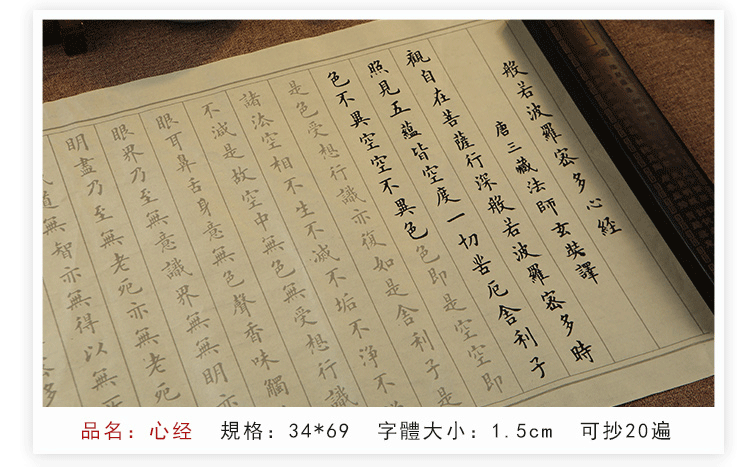 般若波羅密多心經
唐三藏法師玄奘譯
觀自在菩薩行深般若波羅密多時
照見五蘊皆空度一切苦厄舍利子
色不異空空不異色色即是空空即
是色受想行識亦復如是舍利子是
諸法空相不生不滅不垢不淨不
不減是故空中無色無受想行識
眼耳鼻舌身意無色聲香味觸
眼界乃至無意識界無無明亦
明盡乃至無老死亦無老死
道無智亦無得以無所
品名：心经 規格：34*69 字體大小：1.5cm 可抄20遍